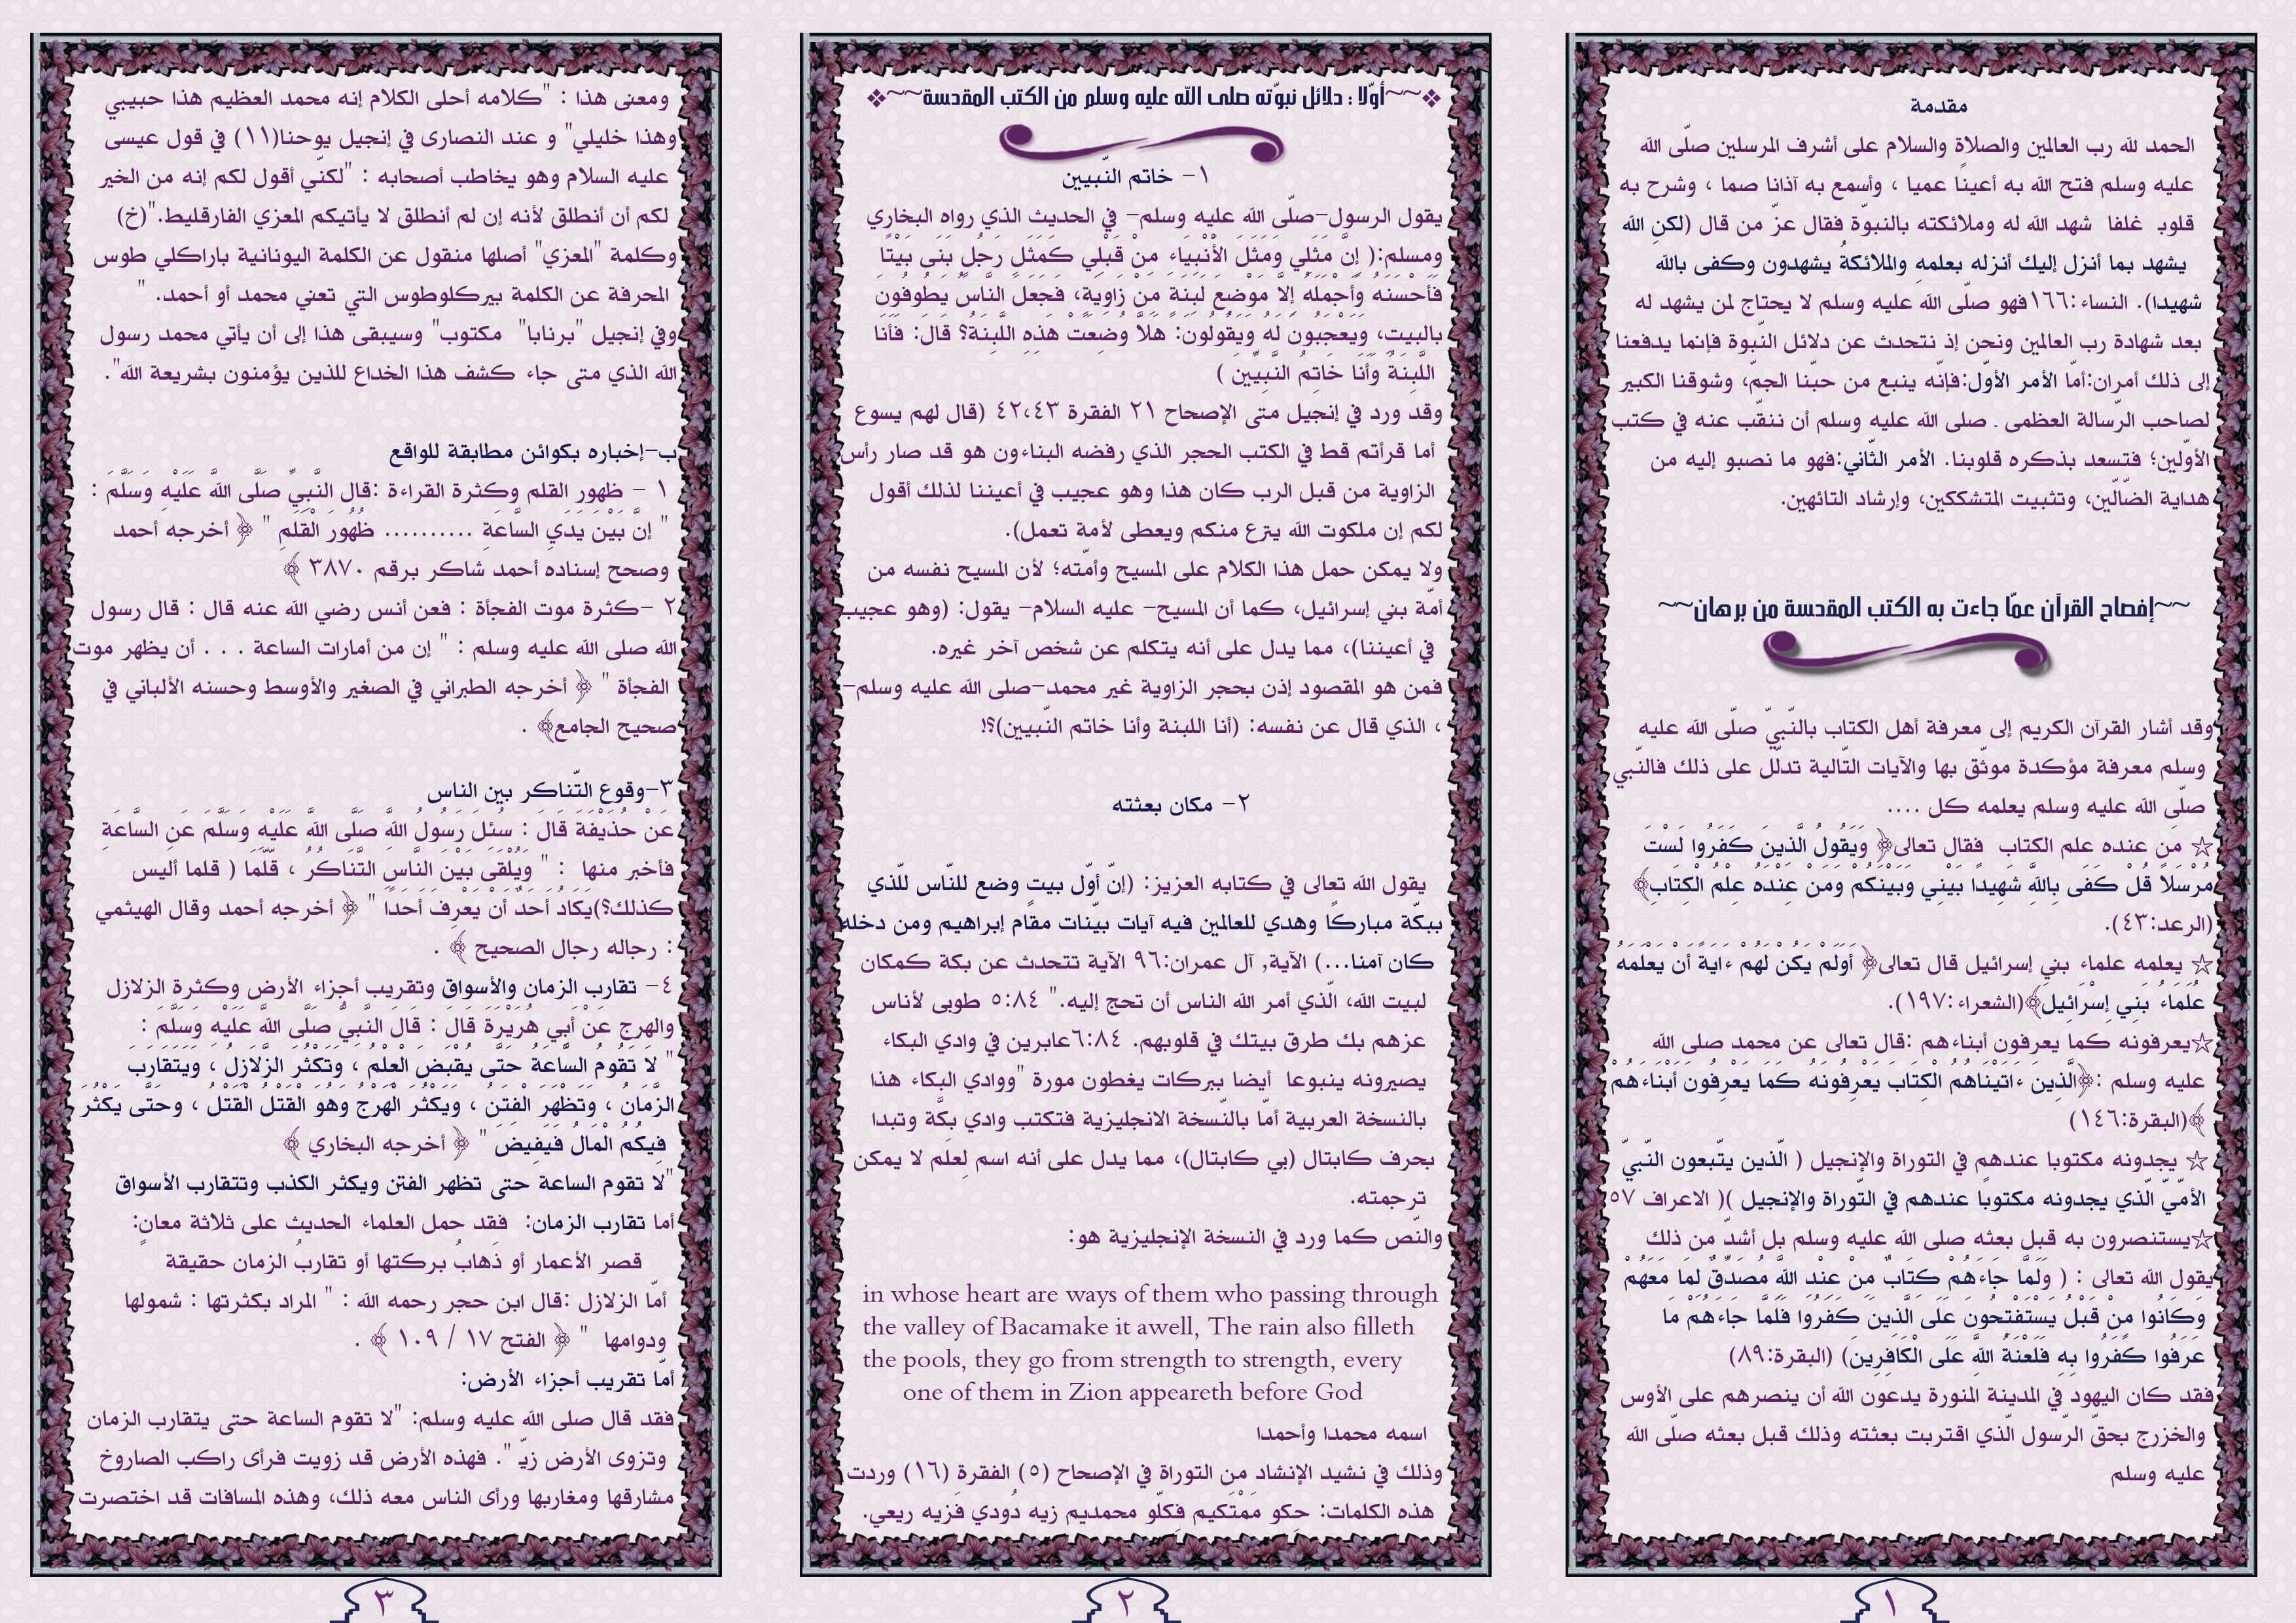 مقدمة
الحمد لله رب العالمين والصلاة والسلام على أشرف المرسلين صلّى الله
عليه وسلم فتح الله به أعينا عميا ، وأسمع به آذانا صما ، وشرح به
قلوبـ غلفا شهد الله له وملائكته بالنبوّة فقال عزّ من قال (لكنِ الله
يشهد بما أنزل إليك أنزله بعلمه والملائكةُ يشهدون وكفى بالله
شهيدا). النساء:١٦٦فهو صلّى الله عليه وسلم لا يحتاج لمن يشهد له
بعد شهادة رب العالمين ونحن إذ نتحدث عن دلائل النّبوة فإنما يدفعنا
إلى ذلك أمران:أمّا الأمر الأوّل:فإنّه ينبع من حبّنا الجمّ، وشوقنا الكبير
لصاحب الرّسالة العظمى ـ صلى الله عليه وسلم أن ننقّب عنه في كتب
الأوّلين؛ فتسعد بذكره قلوبنا. الأمر الثّاني:فهو ما نصبو إليه من
هداية الضّالّين، وتثبيت المتشككين، وإرشاد التائهين.
~~إفصاح القرآن عمّا جاءت به الكتب المقدسة من برهان~~
وقد أشار القرآن الكريم إلى معرفة أهل الكتاب بالنّبيّ صلّى الله عليه
وسلم معرفة مؤكدة موثّق بها والآيات التّالية تدلّل على ذلك فالنّبي
صلّى الله عليه وسلم يعلمه كل ....
☆ مَن عنده علم الكتاب فقال تعالى﴿ وَيَقُولُ الَّذِينَ كَفَرُوا لَسْتَ
مُرْسَلًا قُلْ كَفَى بِاللَّهِ شَهِيدًا بَيْنِي وَبَيْنَكُمْ وَمَنْ عِنْدَهُ عِلْمُ الْكِتَابِ﴾
(الرعد:٤٣).
☆ يعلمه علماء بني إسرائيل قال تعالى﴿ أَوَلَمْ يَكُنْ لَهُمْ ءَايَةً أَنْ يَعْلَمَهُ
عُلَمَاءُ بَنِي إِسْرَائِيلَ﴾(الشعراء:١٩٧).
☆يعرفونه كما يعرفون أبناءهم :قال تعالى عن محمد صلى الله
عليه وسلم :﴿الَّذِينَ ءَاتَيْنَاهُمُ الْكِتَابَ يَعْرِفُونَهُ كَمَا يَعْرِفُونَ أَبْنَاءَهُمْ
﴾(البقرة:١٤٦)
☆ يجدونه مكتوبا عندهم في التوراة والإنجيل ( الّذين يتّبعون النّبيّ
الأمّيّ الّذي يجدونه مكتوبًا عندهم في التّوراة والإنجيل )( الاعراف ٥٧
☆يستنصرون به قبل بعثه صلى الله عليه وسلم بل أشدّ من ذلك
يقول الله تعالى : ( وَلَمَّا جَاءَهُمْ كِتَابٌ مِنْ عِنْدِ اللَّهِ مُصَدِّقٌ لِمَا مَعَهُمْ
وَكَانُوا مِنْ قَبْلُ يَسْتَفْتِحُونَ عَلَى الَّذِينَ كَفَرُوا فَلَمَّا جَاءَهُمْ مَا
عَرَفُوا كَفَرُوا بِهِ فَلَعْنَةُ اللَّهِ عَلَى الْكَافِرِينَ) (البقرة:٨٩)
فقد كان اليهود في المدينة المنورة يدعون الله أن ينصرهم على الأوس
والخزرج بحقّ الرّسول الّذي اقتربت بعثته وذلك قبل بعثه صلّى الله
عليه وسلم
١
❖~~أوّلا : دلائل نبوّته صلى الله عليه وسلم من الكتب المقدسة~~❖
١- خاتم النّبيين
يقول الرسول-صلّى الله عليه وسلم- في الحديث الذي رواه البخاري
ومسلم:( إِنَّ مَثَلِي وَمَثَلَ الأَنْبِيَاءِ مِنْ قَبْلِي كَمَثَلِ رَجُلٍ بَنَى بَيْتًا
فَأَحْسَنَهُ وَأَجْمَلَهُ إِلاَّ مَوْضِعَ لَبِنَةٍ مِنْ زَاوِيَةٍ، فَجَعَلَ النَّاسُ يَطُوفُونَ
بِالْبَيْتِ، وَيَعْجَبُونَ لَهُ وَيَقُولُونَ: هَلاَّ وُضِعَتْ هَذِهِ اللَّبِنَةُ؟ قَالَ: فَأَنَا
اللَّبِنَةُ وَأَنَا خَاتِمُ النَّبِيِّينَ )
وقد ورد في إنجيل متى الإصحاح ٢١ الفقرة ٤٢،٤٣ (قال لهم يسوع
أما قرأتم قط في الكتب الحجر الذي رفضه البناءون هو قد صار رأس
الزاوية من قبل الرب كان هذا وهو عجيب في أعيننا لذلك أقول
لكم إن ملكوت الله ينزع منكم ويعطى لأمة تعمل).
ولا يمكن حمل هذا الكلام على المسيح وأمّته؛ لأن المسيح نفسه من
أمّة بني إسرائيل، كما أن المسيح- عليه السلام- يقول: (وهو عجيب
في أعيننا)، مما يدل على أنه يتكلم عن شخص آخر غيره.
فمن هو المقصود إذن بحجر الزاوية غير محمد-صلى الله عليه وسلم-
، الذي قال عن نفسه: (أنا اللبنة وأنا خاتم النّبيين)؟!
٢- مكان بعثته
يقول الله تعالى في كتابه العزيز: (إنّ أوّل بيتٍ وضع للنّاس للّذي
ببكّة مباركًا وهدي للعالمين فيه آيات بيّنات مقام إبراهيم ومن دخله
كان آمنا...) الآية, آل عمران:٩٦ الآية تتحدث عن بكة كمكان
لبيت الله، الّذي أمر الله الناس أن تحج إليه." ٥:٨٤ طوبى لأناس
عزهم بك طرق بيتك في قلوبهم. ٦:٨٤عابرين في وادي البكاء
يصيرونه ينبوعا أيضا ببركات يغطون مورة "ووادي البكاء هذا
بالنسخة العربية أمّا بالنّسخة الانجليزية فتكتب وادي بكّة وتبدا
بحرف كابتال (بي كابتال)، مما يدل على أنه اسم لعلَم لا يمكن
ترجمته.
والنّص كما ورد في النسخة الإنجليزية هو:
in whose heart are ways of them who passing through
the valley of Bacamake it awell, The rain also filleth
the pools, they go from strength to strength, every
one of them in Zion appeareth before God
اسمه محمدا وأحمدا
وذلك في نشيد الإنشاد من التوراة في الإصحاح (٥) الفقرة (١٦) وردت
هذه الكلمات: حِكو مَمْتَكيم فِكلّو محمديم زيه دُودي فَزيه ريعي.
٢
ومعنى هذا : "كلامه أحلى الكلام إنه محمد العظيم هذا حبيبي
وهذا خليلي" و عند النصارى في إنجيل يوحنا(١١) في قول عيسى
عليه السلام وهو يخاطب أصحابه : "لكنّي أقول لكم إنه من الخير
لكم أن أنطلق لأنه إن لم أنطلق لا يأتيكم المعزي الفارقليط."(خ)
وكلمة "المعزي" أصلها منقول عن الكلمة اليونانية باراكلي طوس
المحرفة عن الكلمة بيركلوطوس التي تعني محمد أو أحمد. "
وفي إنجيل "برنابا" مكتوب" وسيبقى هذا إلى أن يأتي محمد رسول
الله الذي متى جاء كشف هذا الخداع للذين يؤمنون بشريعة الله".
ب-إخباره بكوائن مطابقة للواقع
١ - ظهور القلم وكثرة القراءة :قال النَّبِيِّ صَلَّى اللَّه عَلَيْهِ وَسَلَّمَ :
" إِنَّ بَيْنَ يَدَيِ السَّاعَةِ .......... ظُهُورَ الْقَلَمِ " ﴿ أخرجه أحمد
وصحح إسناده أحمد شاكر برقم ٣٨٧٠ ﴾
٢ -كثرة موت الفجأة : فعن أنس رضي الله عنه قال : قال رسول
الله صلى الله عليه وسلم : " إن من أمارات الساعة . . . أن يظهر موت
الفجأة " ﴿ أخرجه الطبراني في الصغير والأوسط وحسنه الألباني في
صحيح الجامع﴾ .
٣-وقوع التّناكر بين الناس
عَنْ حُذَيْفَةَ قَالَ : سُئِلَ رَسُولُ اللَّهِ صَلَّى اللَّهُ عَلَيْهِ وَسَلَّمَ عَنِ السَّاعَةِ
فأخبر منها : " وَيُلْقَى بَيْنَ النَّاسِ التَّنَاكُرُ ، قَلَّمَا ( قلما أليس
كذلك؟)يَكَادُ أَحَدٌ أَنْ يَعْرِفَ أَحَدًا " ﴿ أخرجه أحمد وقال الهيثمي
: رجاله رجال الصحيح ﴾ .
٤- تقارب الزمان والأسواق وتقريب أجزاء الأرض وكثرة الزلازل
والهرج عَنْ أَبِي هُرَيْرَةَ قَالَ : قَالَ النَّبِيُّ صَلَّى اللَّهُ عَلَيْهِ وَسَلَّمَ :
" لَا تَقُومُ السَّاعَةُ حَتَّى يُقْبَضَ الْعِلْمُ ، وَتَكْثُرَ الزَّلَازِلُ ، وَيَتَقَارَبَ
الزَّمَانُ ، وَتَظْهَرَ الْفِتَنُ ، وَيَكْثُرَ الْهَرْجُ وَهُوَ الْقَتْلُ الْقَتْلُ ، وحَتَّى يَكْثُرَ
فِيكُمُ الْمَالُ فَيَفِيضَ " ﴿ أخرجه البخاري ﴾
"لا تقوم الساعة حتى تظهر الفتن ويكثر الكذب وتتقارب الأسواق
أما تقارب الزمان: فقد حمل العلماء الحديث على ثلاثة معانٍ:
قصر الأعمار أو ذهاب بركتها أو تقارب الزمان حقيقة
أمّا الزلازل :قال ابن حجر رحمه الله : " المراد بكثرتها : شمولها
ودوامها " ﴿ الفتح ١٧ / ١٠٩ ﴾ .
أمّا تقريب أجزاء الأرض:
فقد قال صلى الله عليه وسلم: "لا تقوم الساعة حتى يتقارب الزمان
وتزوى الأرض زيـّ ". فهذه الأرض قد زويت فرأى راكب الصاروخ
مشارقها ومغاربها ورأى الناس معه ذلك، وهذه المسافات قد اختصرت
٣